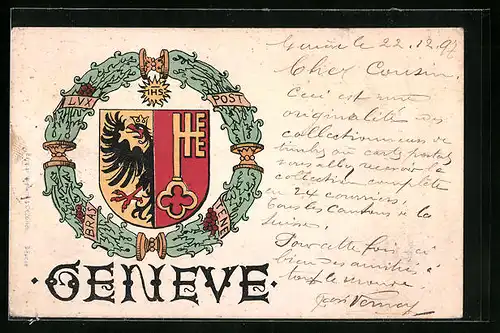 IHS
LVX
POST
TENEBRAS
GENEVE
Genève le 22.12.97
Cher Cousin
Ceci est une
originalité des
collectionneurs de
timbres ou cartes postales
vous allez recevoir la
collection complète
en 24 courriers.
Tous les cantons de la
Suisse.
Pour cette fois-ci
bien des amitiés à
tout le monde